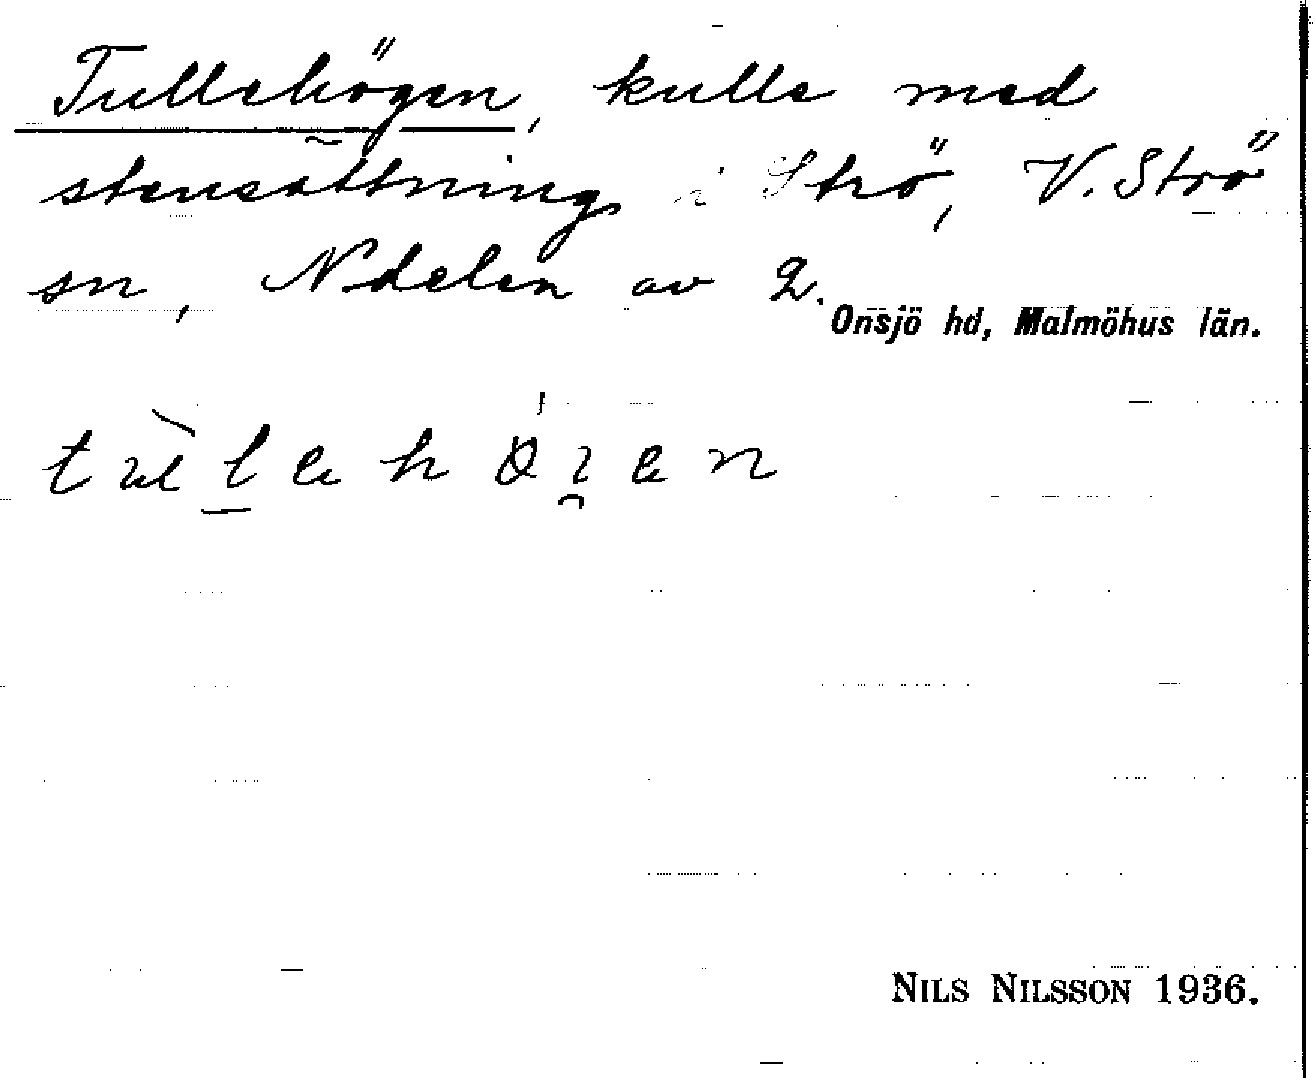 Tullehögen, kulle med
stensättning i Strö, V. Strö
sn, N delen av 2.
Onsjö hd, Malmöhus län.
NILS NILSSON 1936.